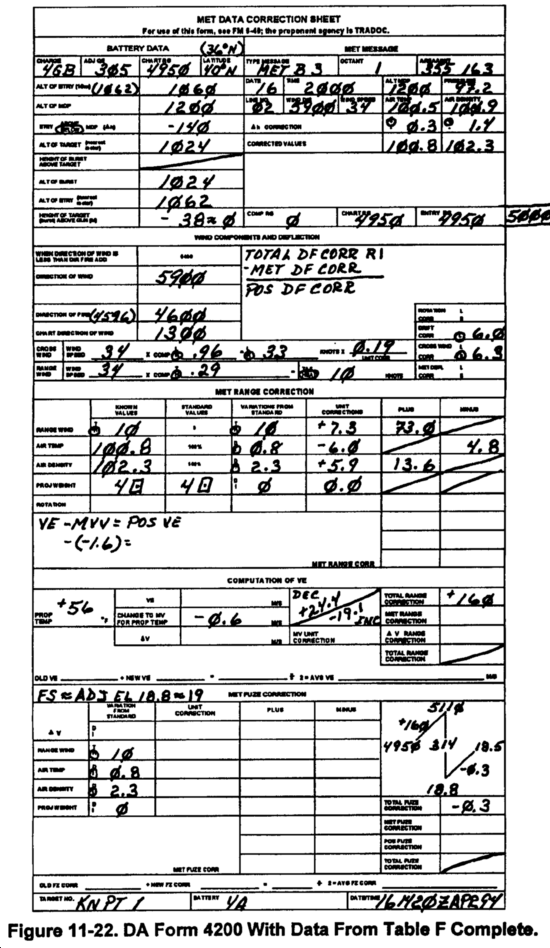 MET DATA CORRECTION SHEET
For use of this form, see FM 6-40; the proponent agency is TRADOC.
BATTERY DATA (36°N) MET MESSAGE
CHARGE ADJ QE CHART RG LATITUDE TYPE MESSAGE OCTANT
4GB 305 4950 40°N MET B 3 1 355 163
ALT OF BTRY (1062) 1060 DATE 16 TIME 2000 ALT MDP 1200 97.2
ALT OF MDP 1200 02 5900 WIND SPEED 34 AIR TEMP 100.5 AIR DENSITY 100.9
BTRY ABOVE BELOW MDP (Δh) -140 Δh CORRECTION 0.3 1.4
ALT OF TARGET 1024 CORRECTED VALUES 100.8 102.3
HEIGHT OF BURST ABOVE TARGET
ALT OF BURST 1024
ALT OF BTRY 1062
HEIGHT OF TARGET (burst) ABOVE GUN (M) -38≈0 COMP RG 0 CHART RG 4950 ENTRY RG 4950 5000
WIND COMPONENTS AND DEFLECTION
WHEN DIRECTION OF WIND IS LESS THAN DIR FIRE ADD 6400
TOTAL DF CORR RI
-MET DF CORR
POS DF CORR
DIRECTION OF WIND 5900
DIRECTION OF FIRE (4596) 4600 ROTATION CORR L R
CHART DIRECTION OF WIND 1300 DRIFT CORR 6.0
CROSS WIND WIND SPEED 34 X COMP .96 = 33 KNOTS X 0.19 UNIT CORR CROSS WIND CORR 6.3
RANGE WIND WIND SPEED 34 X COMP .29 = 10 KNOTS MET DEFL CORR L R
MET RANGE CORRECTION
KNOWN VALUES STANDARD VALUES VARIATIONS FROM STANDARD UNIT CORRECTIONS PLUS MINUS
RANGE WIND 10 0 10 +7.3 73.0
AIR TEMP 100.8 100% 0.8 -6.0 4.8
AIR DENSITY 102.3 100% 2.3 +5.9 13.6
PROJ WEIGHT 4□ 4□ 0 0.0
ROTATION
VE -MVV = POS VE
-(-1.6)=
MET RANGE CORR
COMPUTATION OF VE
PROP TEMP +56 °F VE M/S DEC +24.4 -19.1 INC TOTAL RANGE CORRECTION +160
CHANGE TO MV FOR PROP TEMP -0.6 M/S MET RANGE CORRECTION
ΔV M/S MV UNIT CORRECTION Δ V RANGE CORRECTION
TOTAL RANGE CORRECTION
OLD VE + NEW VE = ÷ 2 = AVG VE M/S
FS ≈ ADJ EL 18.8 ≈ 19 MET FUZE CORRECTION
VARIATION FROM STANDARD UNIT CORRECTION PLUS MINUS
Δ V
5110
+160
RANGE WIND 10 4950 314 18.5
AIR TEMP 0.8 -0.3
AIR DENSITY 2.3 18.8
PROJ WEIGHT 0 TOTAL FUZE CORRECTION -0.3
MET FUZE CORRECTION
POS FUZE CORRECTION
MET FUZE CORR TOTAL FUZE CORRECTION
OLD FZ CORR + NEW FZ CORR = ÷ 2 = AVG FZ CORR
TARGET NO. KN PT 1 BATTERY 4A DATE/TIME 16 1420Z APR 94
Figure 11-22. DA Form 4200 With Data From Table F Complete.